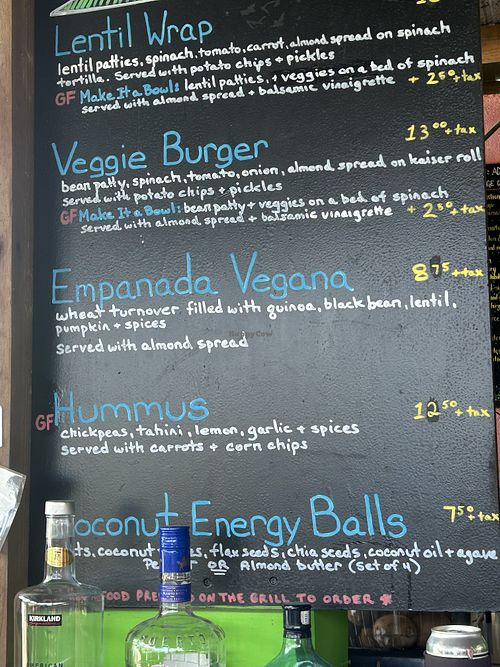 Lentil Wrap
lentil patties, spinach, tomato, carrot, almond spread on spinach
tortilla. Served with potato chips + pickles
GF Make It a Bowl: lentil patties, + veggies on a bed of spinach
served with almond spread + balsamic vinaigrette + 2.50 + tax
Veggie Burger 13.00 + tax
bean patty, spinach, tomato, onion, almond spread on kaiser roll
served with potato chips + pickles
GF Make It a Bowl: bean patty + veggies on a bed of spinach
served with almond spread + balsamic vinaigrette + 2.50 + tax
Empanada Vegana 8.75 + tax
wheat turnover filled with quinoa, black bean, lentil,
pumpkin + spices
HappyCow
Served with almond spread
GF Hummus 12.50 + tax
chickpeas, tahini, lemon, garlic + spices
served with carrots + corn chips
Coconut Energy Balls 7.50 + tax
coconut flax seeds, chia seeds, coconut oil + agave
OR Almond butter (set of 4)
FOOD ON THE GRILL TO ORDER *
KIRKLAND
AMERICAN